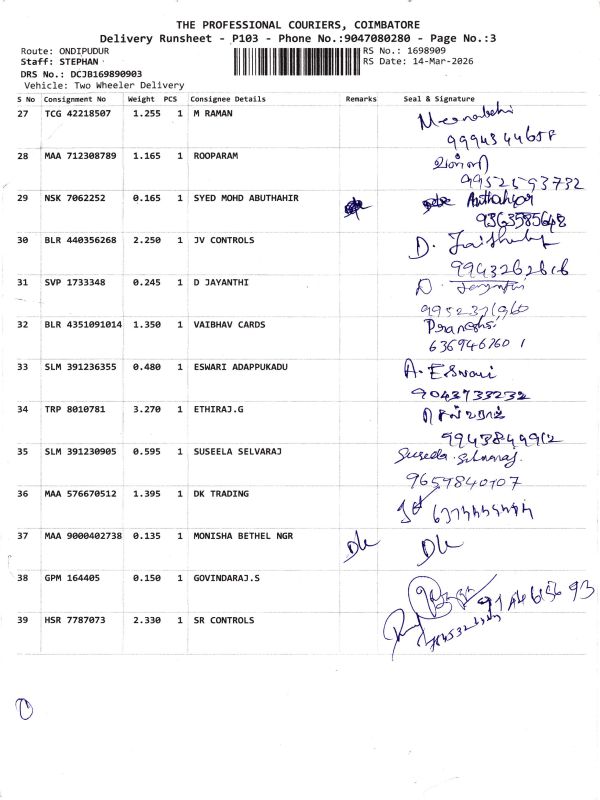 THE PROFESSIONAL COURIERS, COIMBATORE
Delivery Runsheet - P103 - Phone No.:9047080280 - Page No.:3
Route: ONDIPUDUR RS No.: 1698909
Staff: STEPHAN RS Date: 14-Mar-2026
DRS No.: DCJB169890903
Vehicle: Two Wheeler Delivery
S No Consignment No Weight PCS Consignee Details Remarks Seal & Signature
27 TCG 42218507 1.255 1 M RAMAN
9994344658
28 MAA 712308789 1.165 1 ROOPARAM
9952593732
29 NSK 7062252 0.165 1 SYED MOHD ABUTHAHIR
9363585648
30 BLR 440356268 2.250 1 JV CONTROLS D.
9943262616
31 SVP 1733348 0.245 1 D JAYANTHI D. Jayanthi
32 BLR 4351091014 1.350 1 VAIBHAV CARDS
6369467601
33 SLM 391236355 0.480 1 ESWARI ADAPPUKADU A. Eswari
9043733232
34 TRP 8010781 3.270 1 ETHIRAJ.G
9943849912
35 SLM 391230905 0.595 1 SUSEELA SELVARAJ Suseela Selvaraj
9659840707
36 MAA 576670512 1.395 1 DK TRADING
37 MAA 9000402738 0.135 1 MONISHA BETHEL NGR
38 GPM 164405 0.150 1 GOVINDARAJ.S
39 HSR 7787073 2.330 1 SR CONTROLS